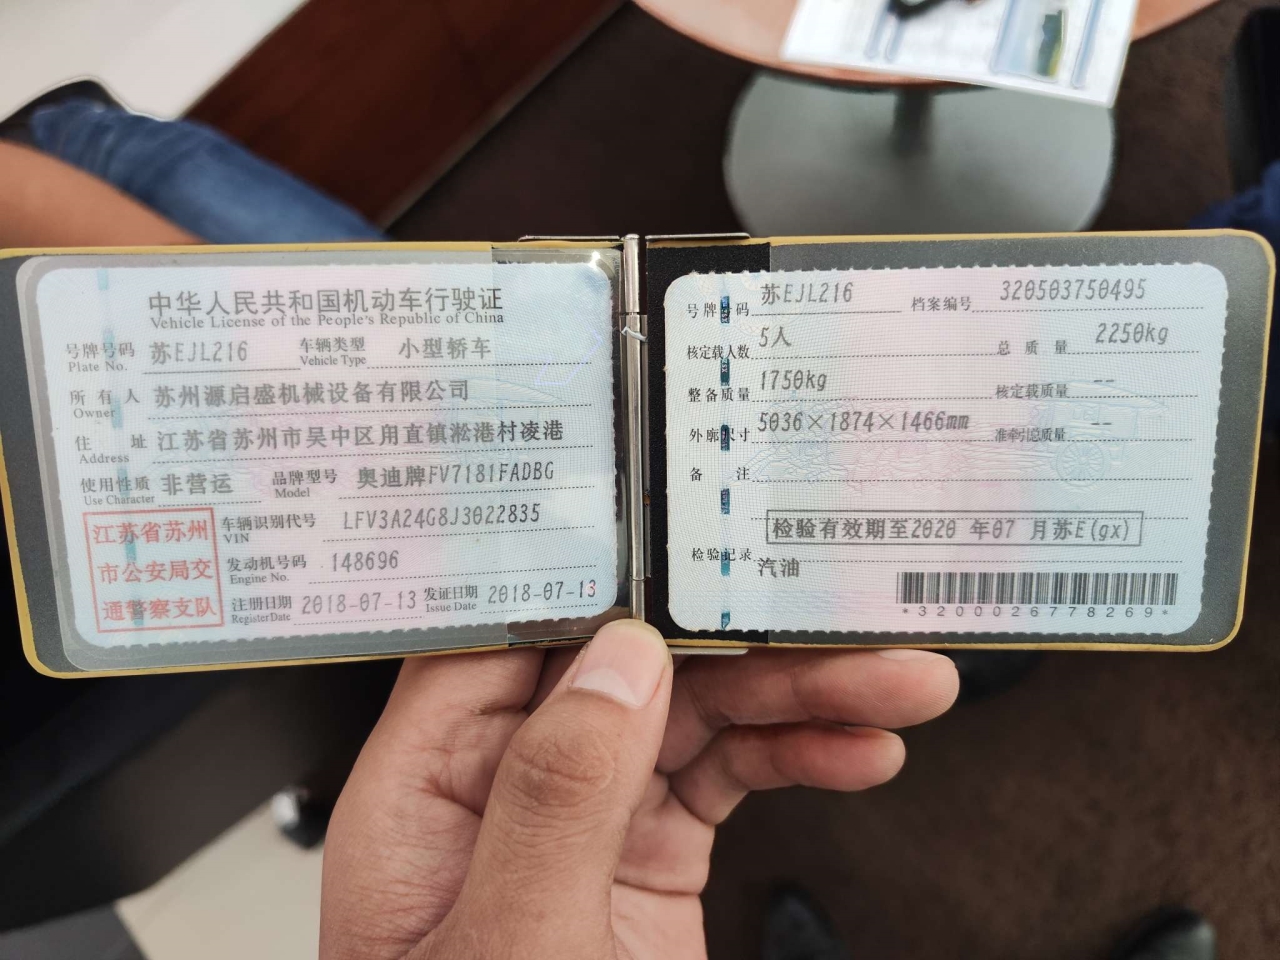 中华人民共和国机动车行驶证
Vehicle License of the People's Republic of China
号牌号码 苏EJL216 车辆类型 小型轿车
Plate No. Vehicle Type
所有人 苏州源启盛机械设备有限公司
Owner
住址 江苏省苏州市吴中区甪直镇淞港村凌港
Address
使用性质 非营运 品牌型号 奥迪牌FV7181FADBG
Use Character Model
江苏省苏州
市公安局交
通警察支队
车辆识别代号 LFV3A24G8J3022835
VIN
发动机号码 148696
Engine No.
注册日期 2018-07-13 发证日期 2018-07-13
Register Date Issue Date
号牌号码 苏EJL216 档案编号 320503750495
核定载人数 5人 总质量 2250kg
整备质量 1750kg 核定载质量 --
外廓尺寸 5036×1874×1466mm 准牵引总质量 --
备注
检验有效期至2020 年07 月苏E(gx)
检验记录
汽油
*3200026778269*